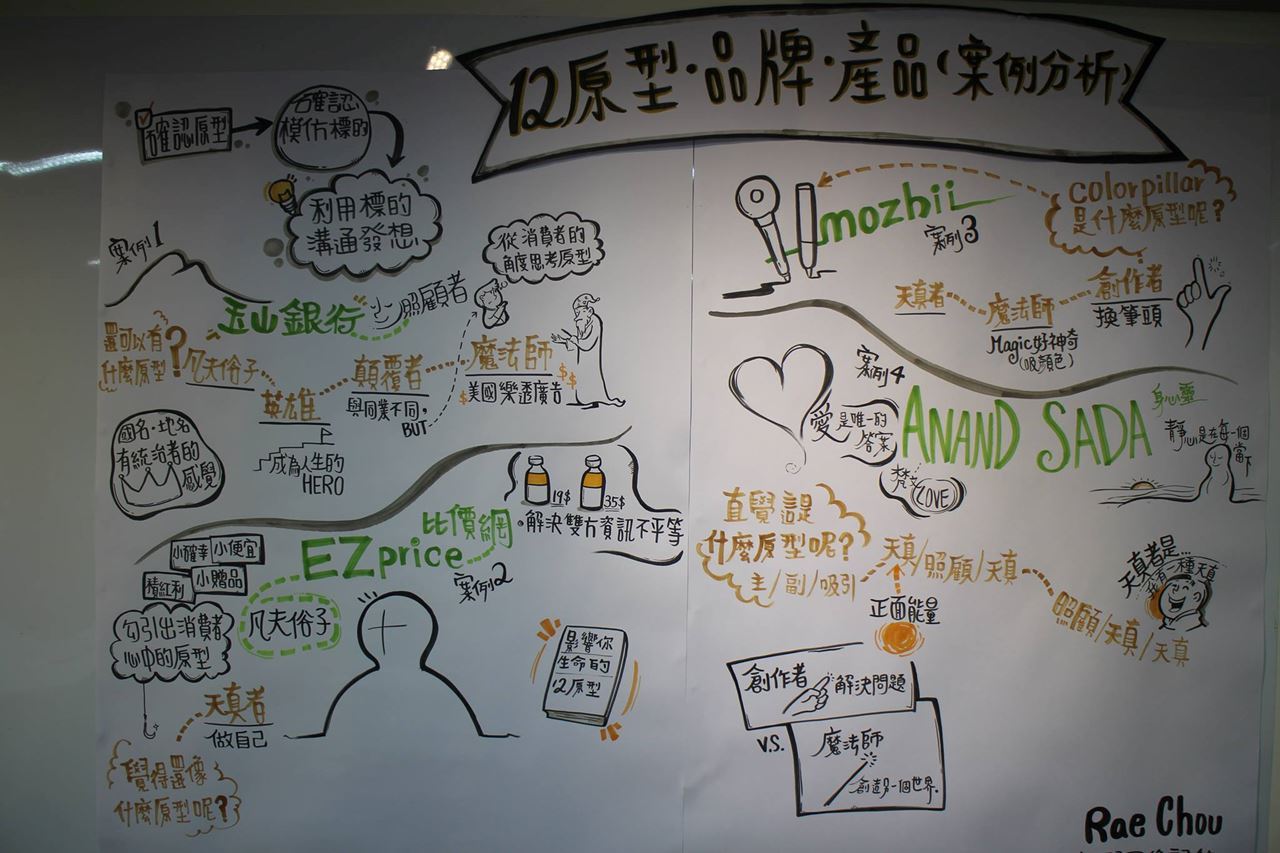 12原型·品牌·產品(案例分析)
確認原型
確認
模仿標的
利用標的
溝通發想
案例1
玉山銀行
照顧者
從消費者的
角度思考原型
還可以有
什麼原型?
凡夫俗子
英雄
成為人生的
HERO
顛覆者
與同業不同,
BUT
魔法師
$美國樂透廣告
$$
國名·地名
有統治者的
感覺
比價網
EZprice
案例2
19$
35$
·解決雙方資訊不平等
小確幸
小便宜
積紅利
小贈品
勾引出消費者
心中的原型
凡夫俗子
天真者
做自己
覺得還像
什麼原型呢?
影響你
生命的
12原型
mozbii
案例3
colorpillar
是什麼原型呢?
天真者
魔法師
Magic好神奇
(吸顏色)
創作者
換筆頭
案例4
愛是唯一的
答案
ANAND SADA
身心靈
梵文
LOVE
靜心是在每一個
當下
直覺這是
什麼原型呢?
主/副/吸引
天真/照顧/天真
正面能量
照顧/天真/天真
天真者是...
我有一種天真
創作者
解決問題
v.s.
魔法師
創造另一個世界.
Rae Chou